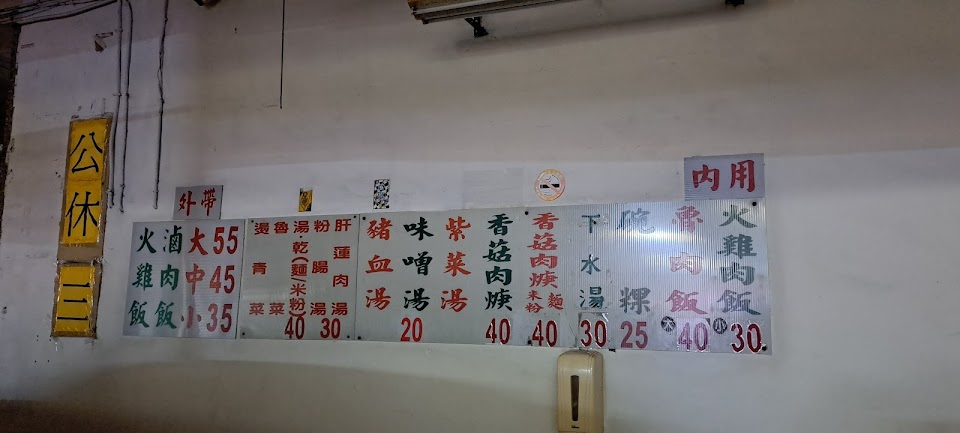 內用
火雞肉飯
魯肉飯
大40
小30
碗粿
25
下水湯
30
香菇肉焿麵
米粉
40
香菇肉焿
40
紫菜湯
味噌湯
豬血湯
20
肝蓮肉湯
粉腸湯
30
湯.乾(麵/米粉)
40
魯菜
燙青菜
外帶
大55
中45
小35
滷肉飯
火雞飯
公休三